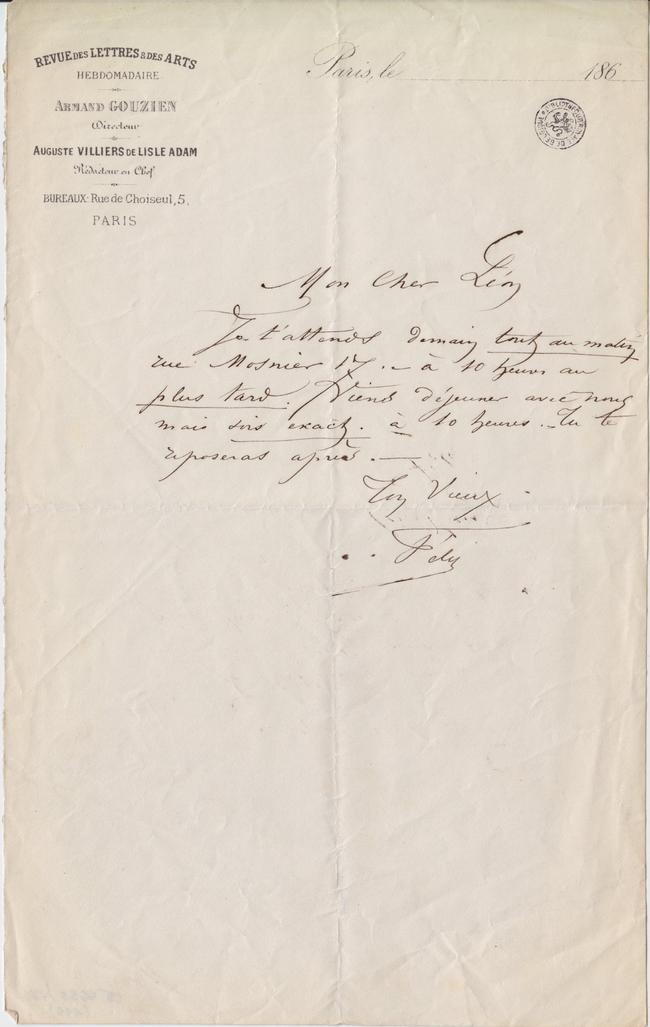 REVUE DES LETTRES & DES ARTS
HEBDOMADAIRE
ARMAND GOUZIEN
Directeur
AUGUSTE VILLIERS DE LISLE ADAM
Rédacteur en Chef
BUREAUX: Rue de Choiseul, 5,
PARIS
Paris, le 186
Mon cher Léon
Je t'attends demain tout au matin
rue Mosnier 17. – à 10 heures au
plus tard. Viens déjeuner avec nous
mais sois exact. à 10 heures. – Tu te
reposeras après. —
Ton Vieux
Félix